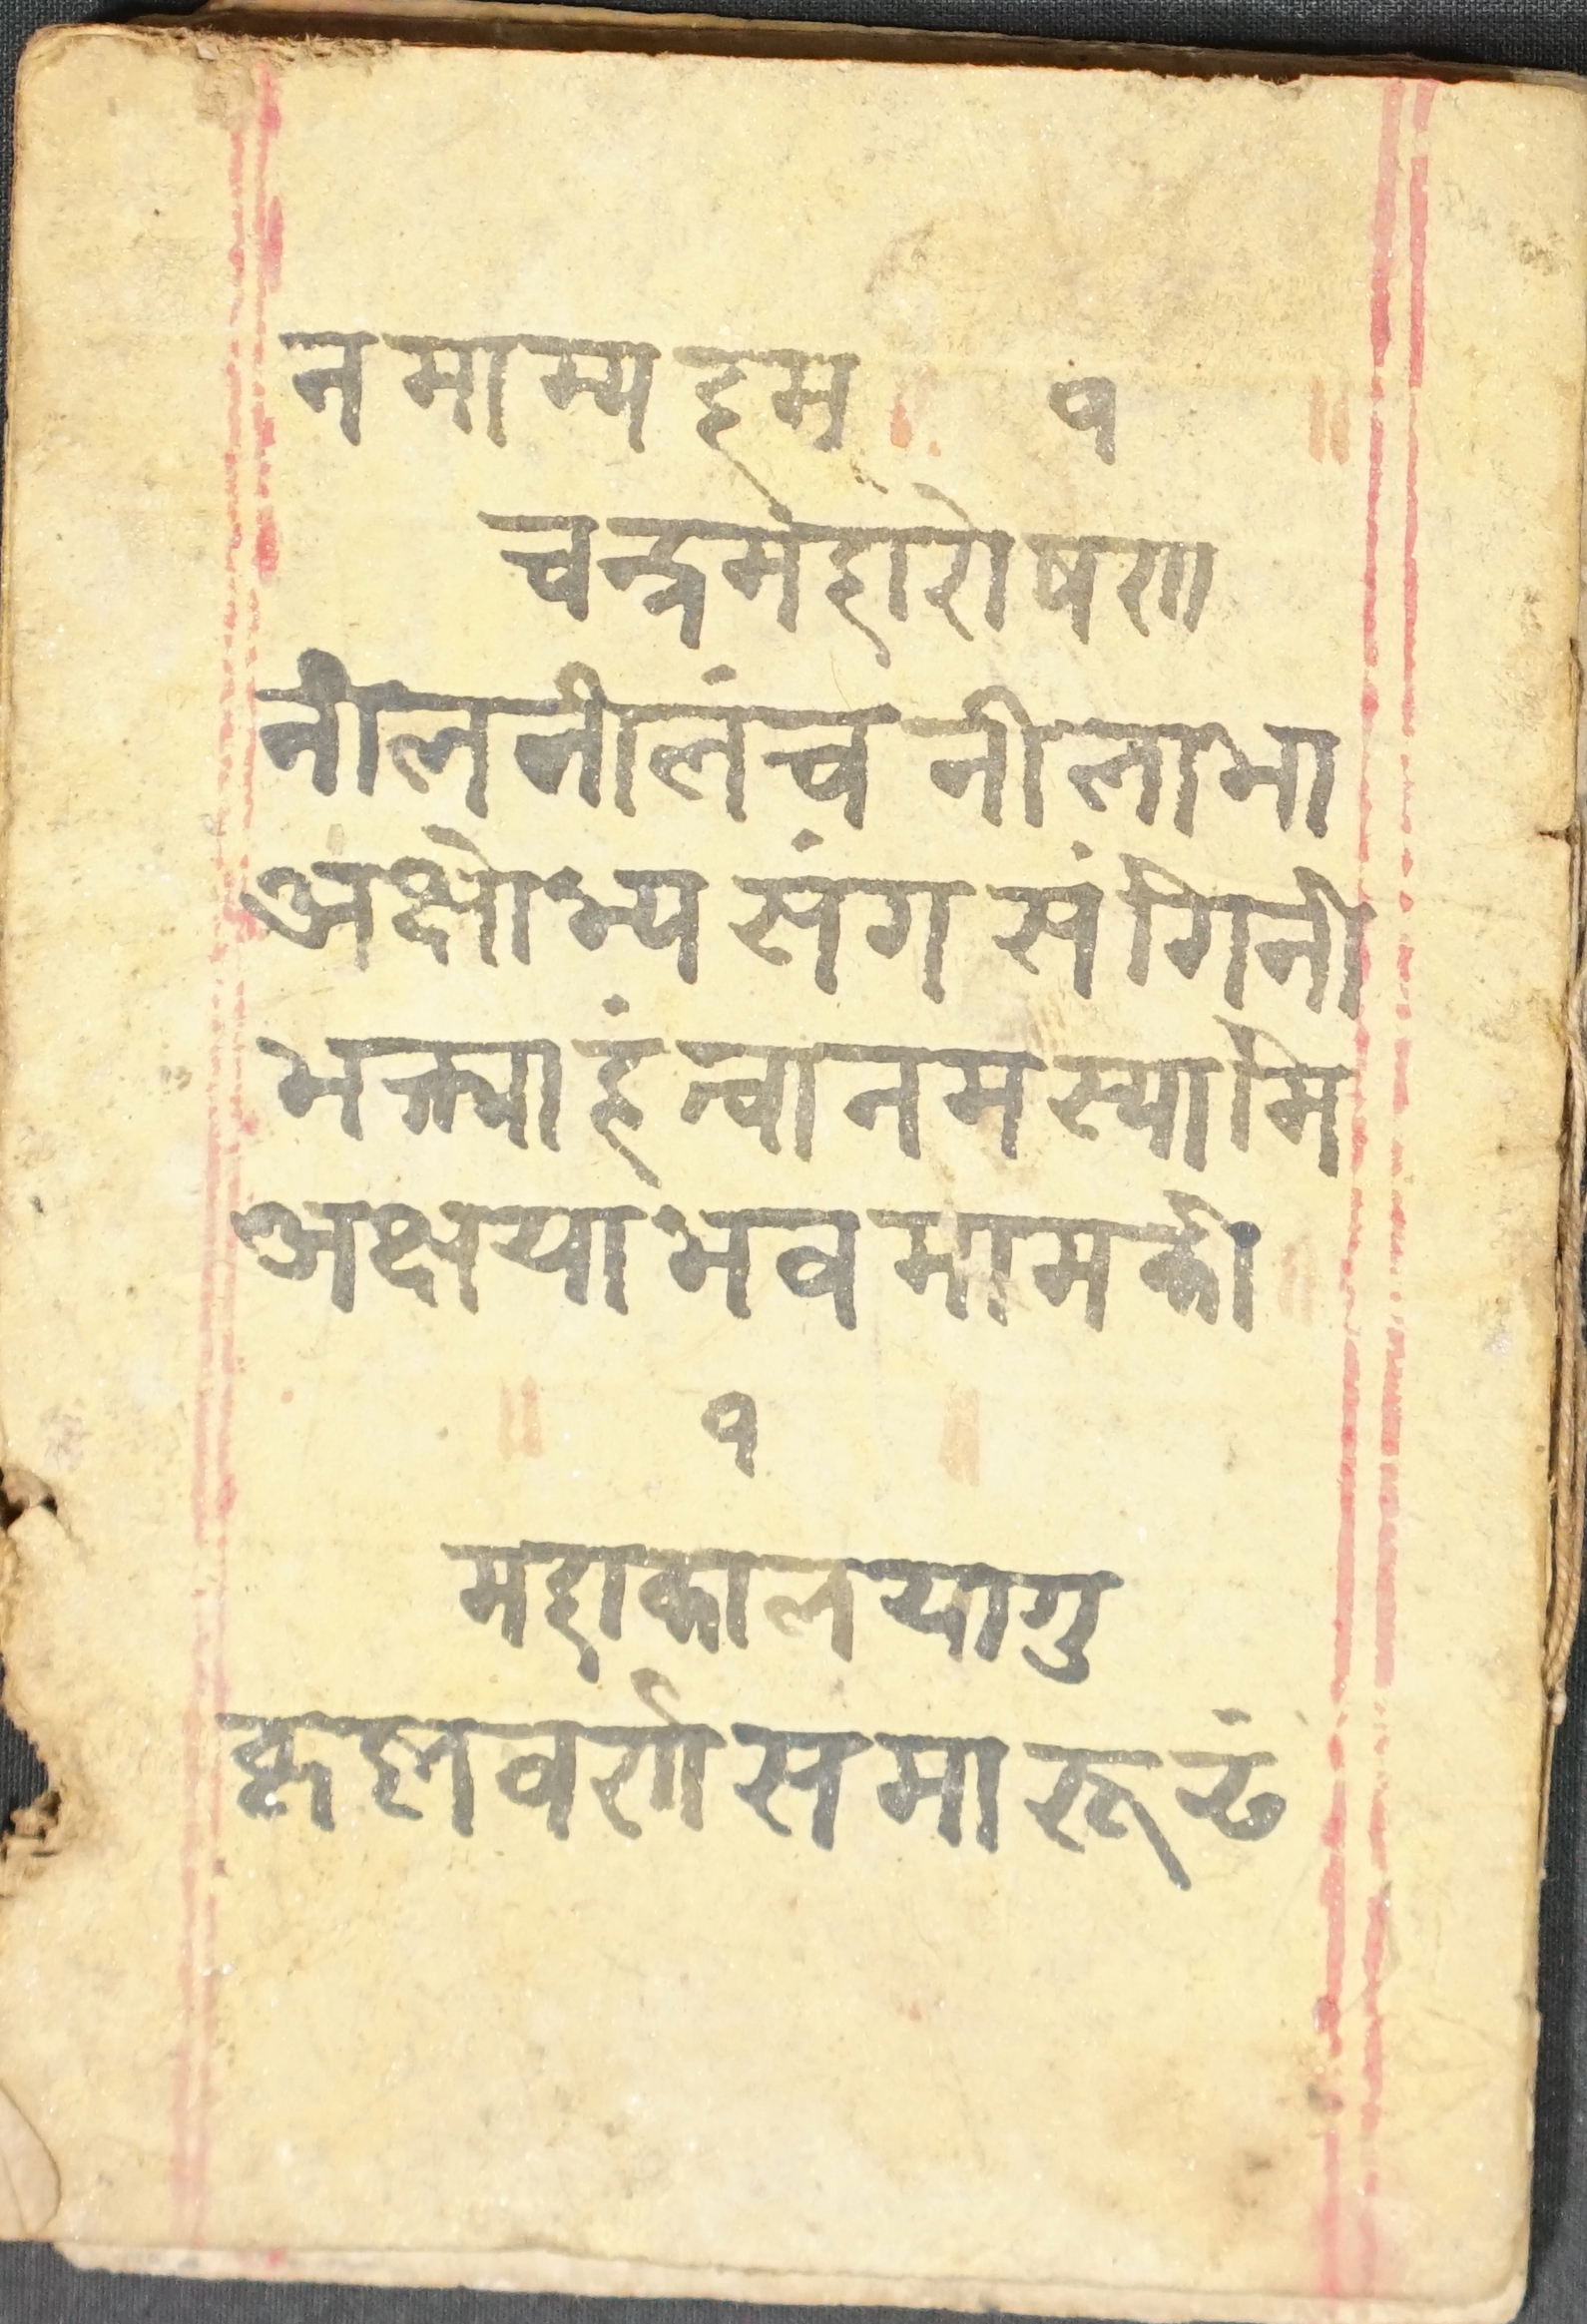 नमाम्यहम् ॥ १ ॥
चन्द्रमहारोषण
नीलनीलंच नीलाभा
अक्षोभ्य संग संगिनी
भक्त्याहं त्वा नमस्यामि
अक्षयाभव मामकी ॥
॥ १ ॥
महाकालयागु
कृष्णवर्णसमारूढं